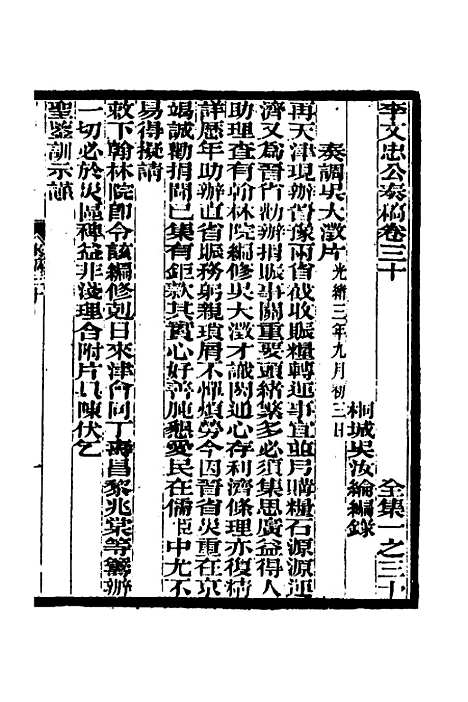 李文忠公奏稿卷三十　全集一之三十
桐城吳汝綸編錄
奏調吳大澂片 光緒三年九月初三日
再天津現辦晉豫兩省截收賑糧轉運事宜並另購糧石源源運
濟又為晉省勸辦捐賑事關重要頭緒繁多必須集思廣益得人
助理查有翰林院編修吳大澂才識閎通心存利濟條理亦復精
詳歷年助辦直省賑務躬親瑣屑不憚煩勞今因晉省災重在京
竭誠勸捐聞已集有鉅款其實心好善肫懇愛民在儒臣中尤不
易得擬請
敕下翰林院飭令該編修剋日來津會同丁壽昌黎兆棠等籌辦
一切必於災區裨益非淺理合附片具陳伏乞
聖鑒訓示謹